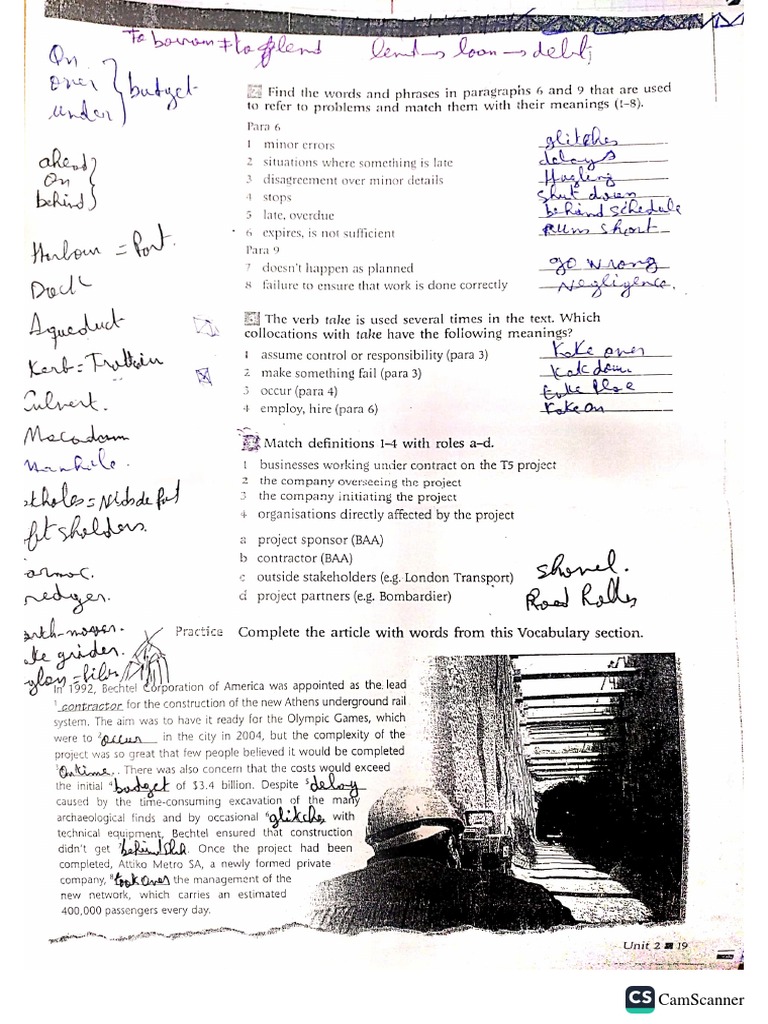 to borrow ≠ to lend lend → loan → debt
On
over
under
budget
Find the words and phrases in paragraphs 6 and 9 that are used
to refer to problems and match them with their meanings (1–8).
Para 6
1 minor errors glitches
2 situations where something is late delays
3 disagreement over minor details Hagling
4 stops shut down
5 late, overdue behind schedule
6 expires, is not sufficient runs short
Para 9
7 doesn't happen as planned go wrong
8 failure to ensure that work is done correctly Negligence.
ahead
On
behind
Harbour = Port.
Dock
Aqueduct
Kerb =
Culvert.
Macadam
Manhole.
The verb take is used several times in the text. Which
collocations with take have the following meanings?
1 assume control or responsibility (para 3) take over
2 make something fail (para 3) take down
3 occur (para 4) take place
4 employ, hire (para 6) take on
Match definitions 1–4 with roles a–d.
1 businesses working under contract on the T5 project
2 the company overseeing the project
3 the company initiating the project
4 organisations directly affected by the project
a project sponsor (BAA)
b contractor (BAA)
c outside stakeholders (e.g. London Transport)
d project partners (e.g. Bombardier)
shovel.
Road Roller
Practice Complete the article with words from this Vocabulary section.
In 1992, Bechtel Corporation of America was appointed as the lead
1 contractor for the construction of the new Athens underground rail
system. The aim was to have it ready for the Olympic Games, which
were to 2 occur in the city in 2004, but the complexity of the
project was so great that few people believed it would be completed
3 On time. There was also concern that the costs would exceed
the initial 4 budget of $3.4 billion. Despite 5 delay
caused by the time-consuming excavation of the many
archaeological finds and by occasional 6 glitches with
technical equipment, Bechtel ensured that construction
didn't get 7 behind . Once the project had been
completed, Attiko Metro SA, a newly formed private
company, 8 took over the management of the
new network, which carries an estimated
400,000 passengers every day.
Unit 2 19
CS CamScanner